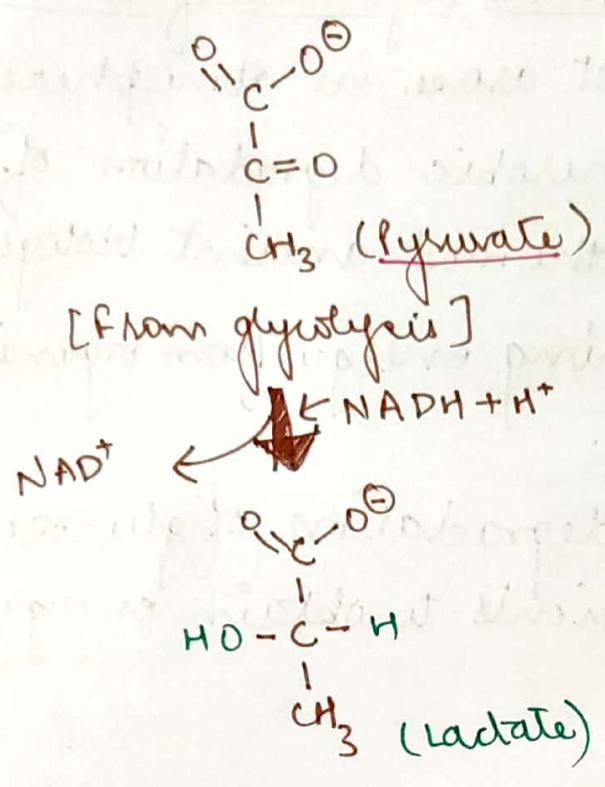 O O⊖
C
C=O
CH3 (Pyruvate)
[From glycolysis]
NADH + H+
NAD+
O O⊖
C
HO - C - H
CH3 (Lactate)